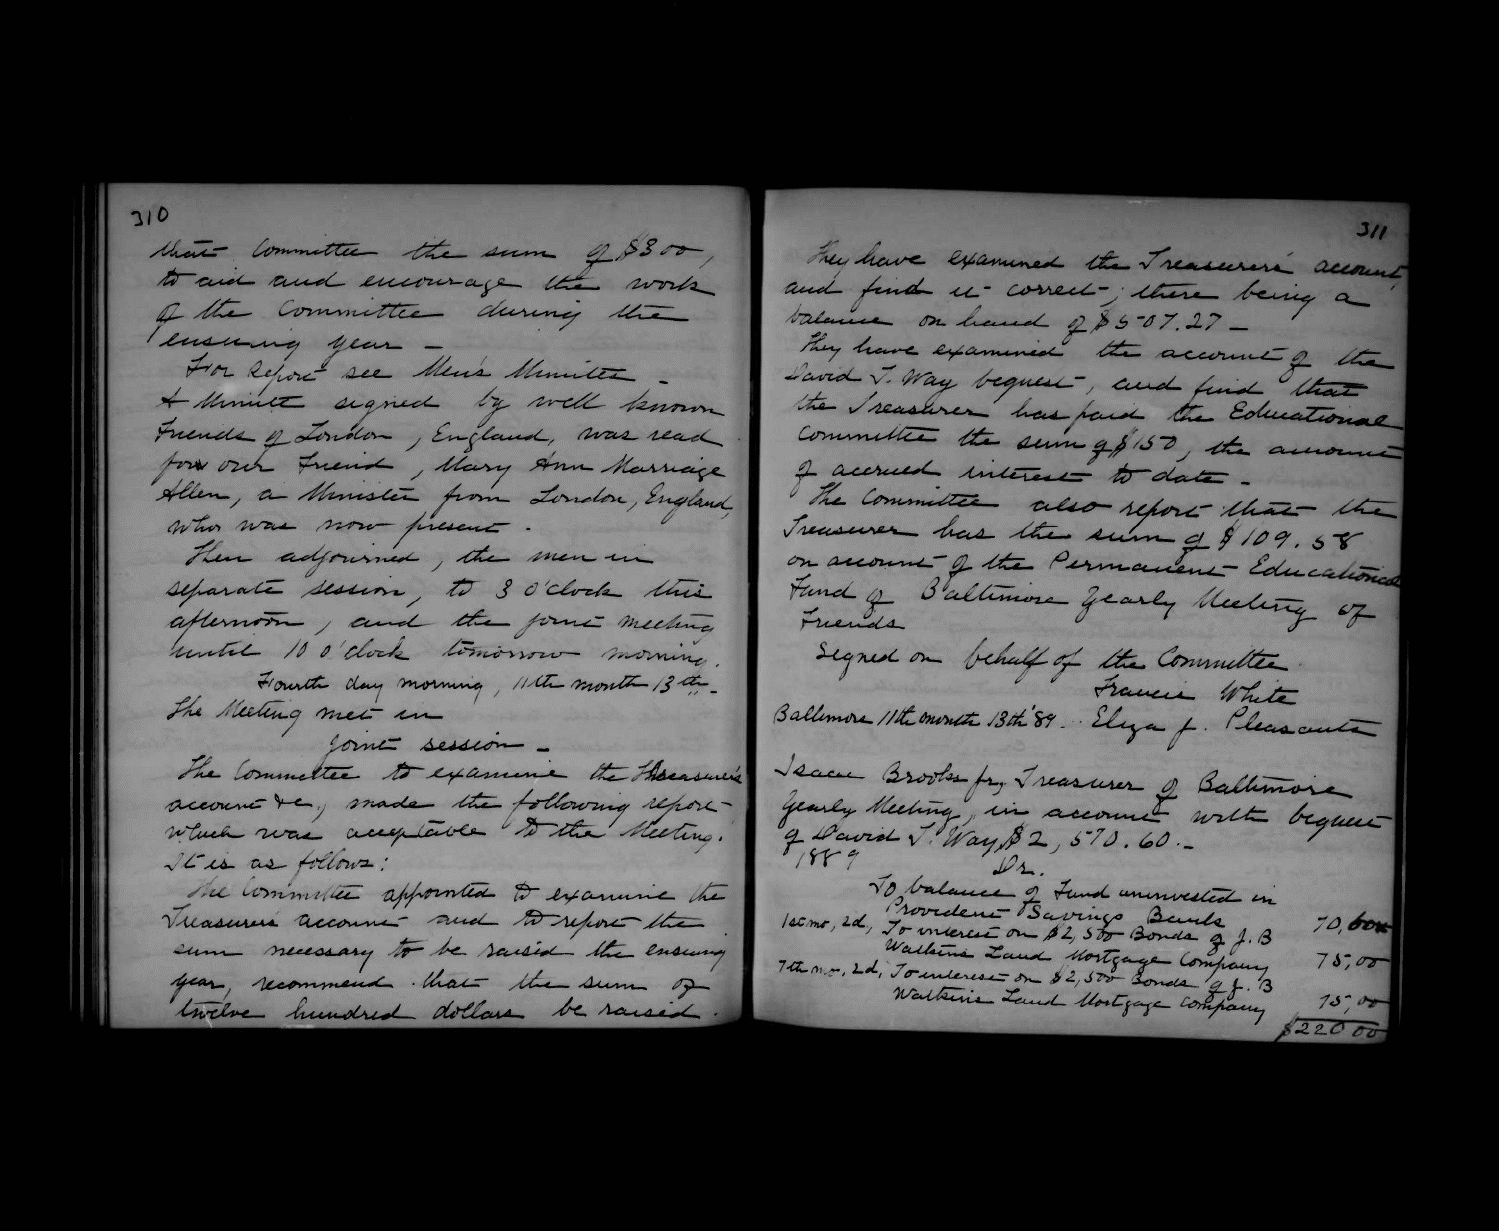 310
that Committee the sum of $300,
to aid and encourage the work
of the Committee during the
ensuing year –
For Report see Men's Minutes –
A Minute signed by well known
Friends of London, England, was read
for our Friend, Mary Ann Marriage
Allen, a Minister from London, England,
who was now present.
Then adjourned, the men in
separate session, to 3 o'clock this
afternoon, and the joint meeting
until 10 o'clock tomorrow morning.
Fourth day morning, 11th month 13th –
The Meeting met in
joint session –
The Committee to examine the Treasurer's
account &c., made the following report
which was acceptable to the Meeting.
It is as follows:
The Committee appointed to examine the
Treasurer's account and to report the
sum necessary to be raised the ensuing
year, recommend that the sum of
twelve hundred dollars be raised.
311
They have examined the Treasurers' account,
and find it correct; there being a
balance on hand of $507.27 –
They have examined the account of the
David T. Way bequest, and find that
the Treasurer has paid the Educational
Committee the sum of $150, the amount
of accrued interest to date –
The Committee also report that the
Treasurer has the sum of $109.58
on account of the Permanent Educational
Fund of Baltimore Yearly Meeting of
Friends
Signed on behalf of the Committee
Francis White
Baltimore 11th month 13th '89. Eliza J. Pleasants
Isaac Brooks Jr, Treasurer of Baltimore
Yearly Meeting, in account with bequest
of David T. Way, $2,570.60.–
1889
Dr.
To balance of Fund uninvested in
Provident Savings Bank 70,
1st mo, 2d, To interest on $2,500 Bonds of J. B
Watkins Land Mortgage Company 75,00
7th mo, 2d, To interest on $2,500 Bonds of J. B
Watkins Land Mortgage Company 75,00
$220 00